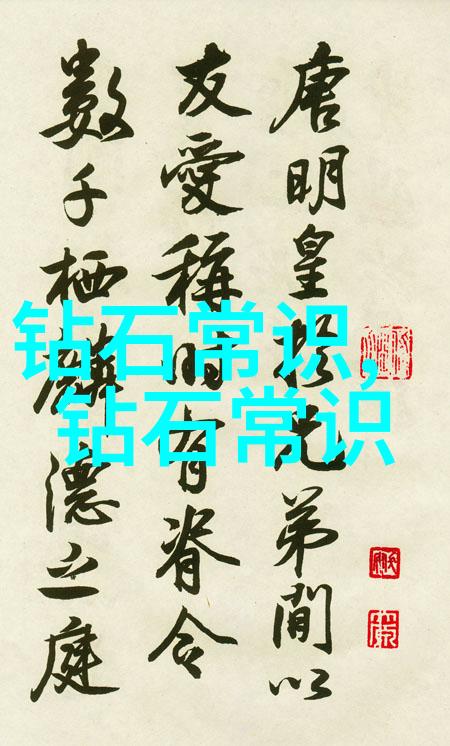 唐明皇于兄弟間以
友愛稱時有脊令
數千栖麟德之庭
钻石常识,
钻石常识